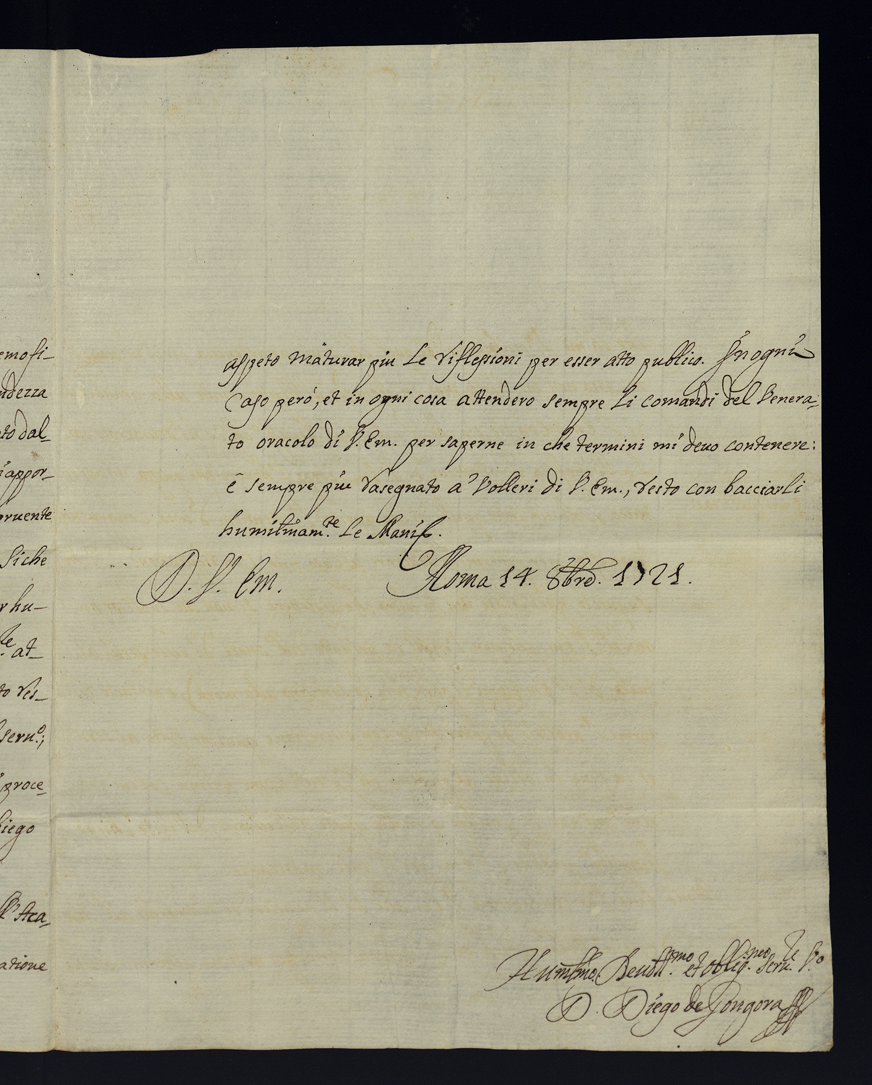 emo si-
ndezza
to dal-
i appor-
pruente
Siche
r hu-
te at-
to ris-
seru.o;
proce-
Diego
ll'Aca-
atione
aspeto màturar piu le riflessioni per esser atto publico. In ogni
Caso peró, et in ogni cosa attendero sempre li comandi del Venera-
to oracolo di V. Em. per saperne in che termini mi devo contenere:
è sempre piu rasegnato a' Volleri di V. Em., resto con bacciarli
humilmam.te le Mani.
D. V. Em. Roma 14. 8bre. 1721.
Humilmo. Deudt.mo et oblig.mo seru.te V.o
D. Diego de Gongora